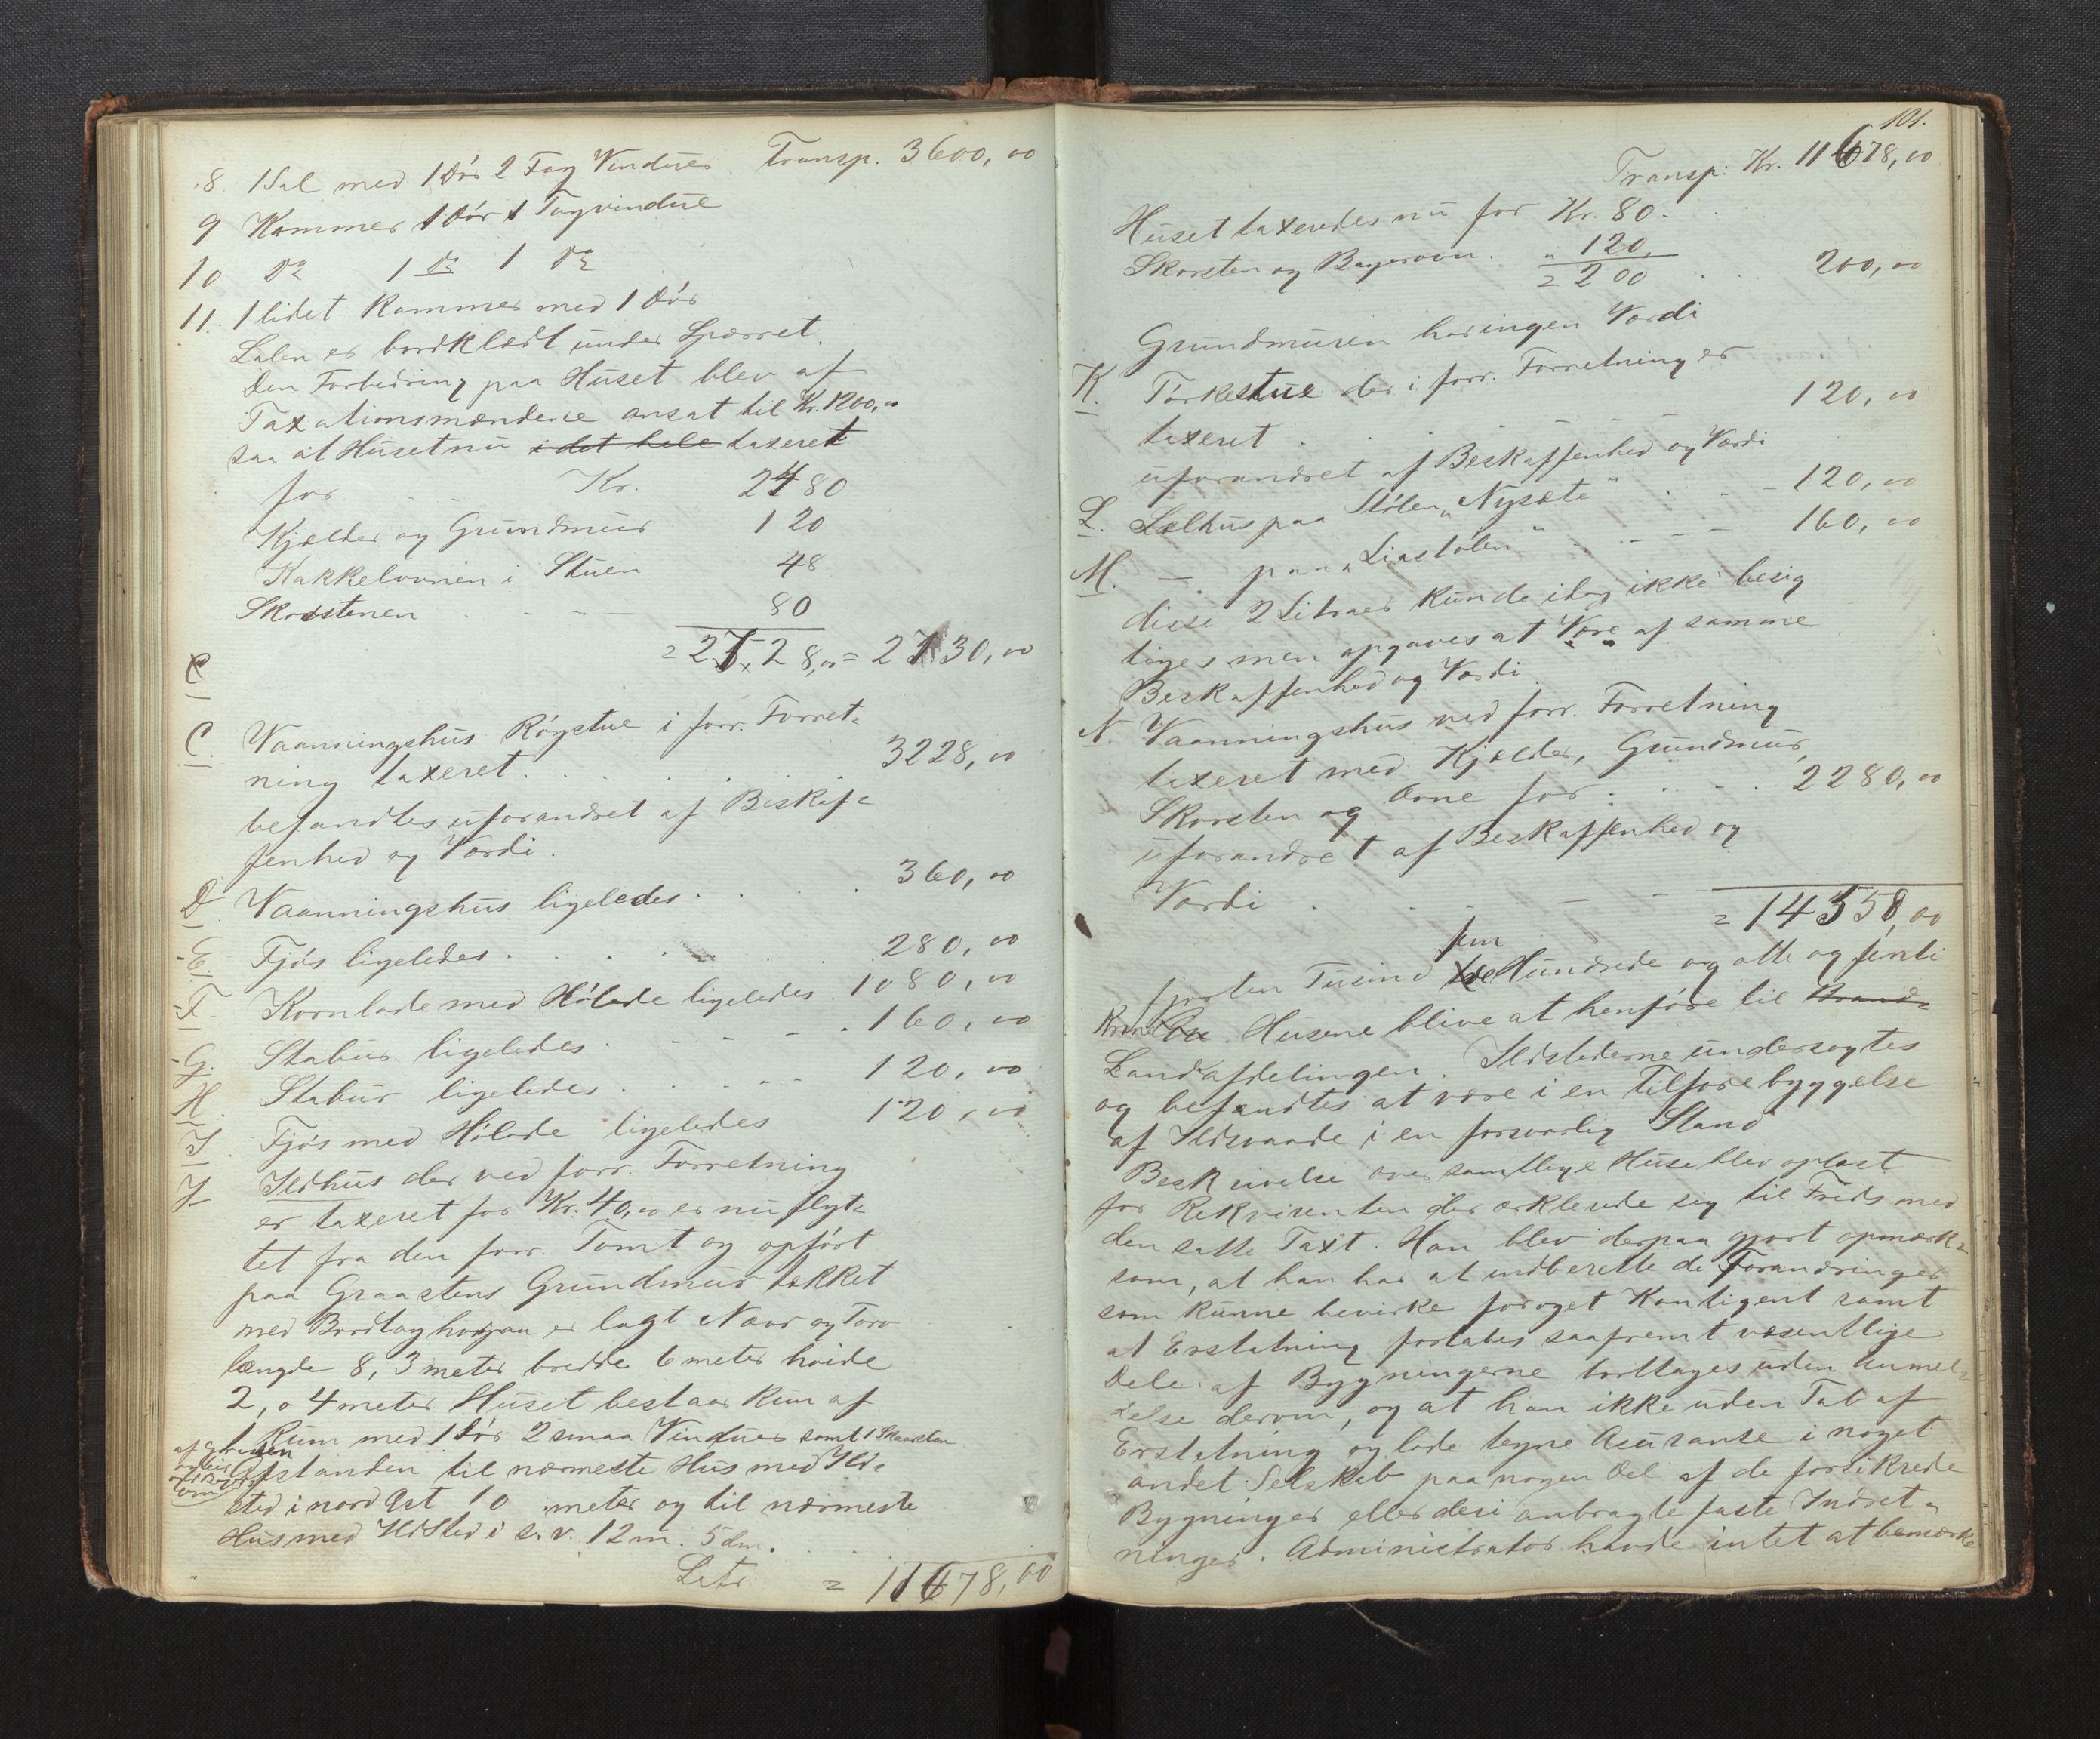 8 1 Sal med 1 Dør 2 Fag Vinduer Transp. 3600,00
9 Kammer 1 Dør 1 Tagvindue
10 Do 1 do 1 Do
11. 1 lidet Kammer med 1 Dør
Salen er bordklædt under Sperret.
Den Forbedring paa Huset blev af
Taxationsmændene ansat til Kr. 1200,00
saa at Huset nu i det hele taxeret
for . . Kr. 2480
Kjælder og Grundmur 120
Kakkelovnen i Stuen 48
Skorstenen . - - - 80
= 2728,00 = 2730,00
C
C. Vaanningshus Røgstue i forr. Forret-
ning taxeret . . . . . . 3228,00
befandtes uforandret af Beskaf-
fenhed og Værdi.
D Vaanningshus ligeledes . . . . 360,00
E. Fjøs ligeledes . . . . . . . 280,00
F. Kornlade med Hølade ligeledes . 1080,00
G. Stabur ligeledes . - - - . 160,00
H. Stabur ligeledes . . . - - 120,00
I Fjøs med Hølade ligeledes 120,00
J. Ildhus der ved forr. Forretning
er taxeret for Kr. 40,00 er nu flyt-
tet fra den forr. Tomt og opført
paa Graastens Grundmur tækket
med Bordtag hvorpaa er lagt Næver og Torv
længde 8,3 meter bredde 6 meter høide
2,04 meter Huset bestaar kun af
1 Rum med 1 Dør 2 smaa Vinduer samt 1 Skaarsten
af
Afstanden til nærmeste Hus med Ild-
sted i nord Øst 10 meter og til nærmeste
Hus med Ildsted i S.V. 12 m. 5 dm.
Latr = 11678,00
101.
Transp: Kr. 11678,00
Huset taxeredes nu for Kr. 80.
Skorsten og Bagerovn. " 120,
= 200 . . 200,00
Grundmuren har ingen Værdi
K. Tørkestue der i forr. Forretning er
taxeret . . . . . . 120,00
uforandret af Beskaffenhed og Værdi
L. Sælhus paa Stølen „Nysæte" . . - - 120,00
M. — paa „Liastølen" . . - - - 160,00
disse 2 Litraer kunde idag ikke besig
tiges men opgaves at være af samme
Beskaffenhed og Værdi.
N. Vaanningshus ved forr. Forretning
taxeret med Kjælder, Grundmur,
Skorsten og Ovne for : . . - . 2280,00
uforandret af Beskaffenhed og
Værdi . . . - - -
= 14558,00
fem
fjorten Tusind tre Hundrede og otte og femti
Kroner. Husene blive at henføre til Brand-
Landafdelingen. Ildstederne undersøgtes
og befandtes at være i en Tilforebyggelse
af Ildsvaade i en forsvarlig Stand
Beskrivelse over samtlige Huse blev oplæst
for Rekvirenten der erklærede sig til Freds med
den satte Taxt. Han blev derpaa gjort opmærk-
som, at han har at indberette de Forandringer
som kunne bevirke forøget Kontigent samt
at Erstatning fortabes saafremt væsentlige
Dele af Bygningerne borttages uden Anmel-
delse derom, og at han ikke uden Tab af
Erstatning og lade tegne Asuranse i noget
andet Selskab paa nogen Del af de forsikrede
Bygninger eller deri anbragte faste Indret-
ninger. Administrator havde intet at bemærke